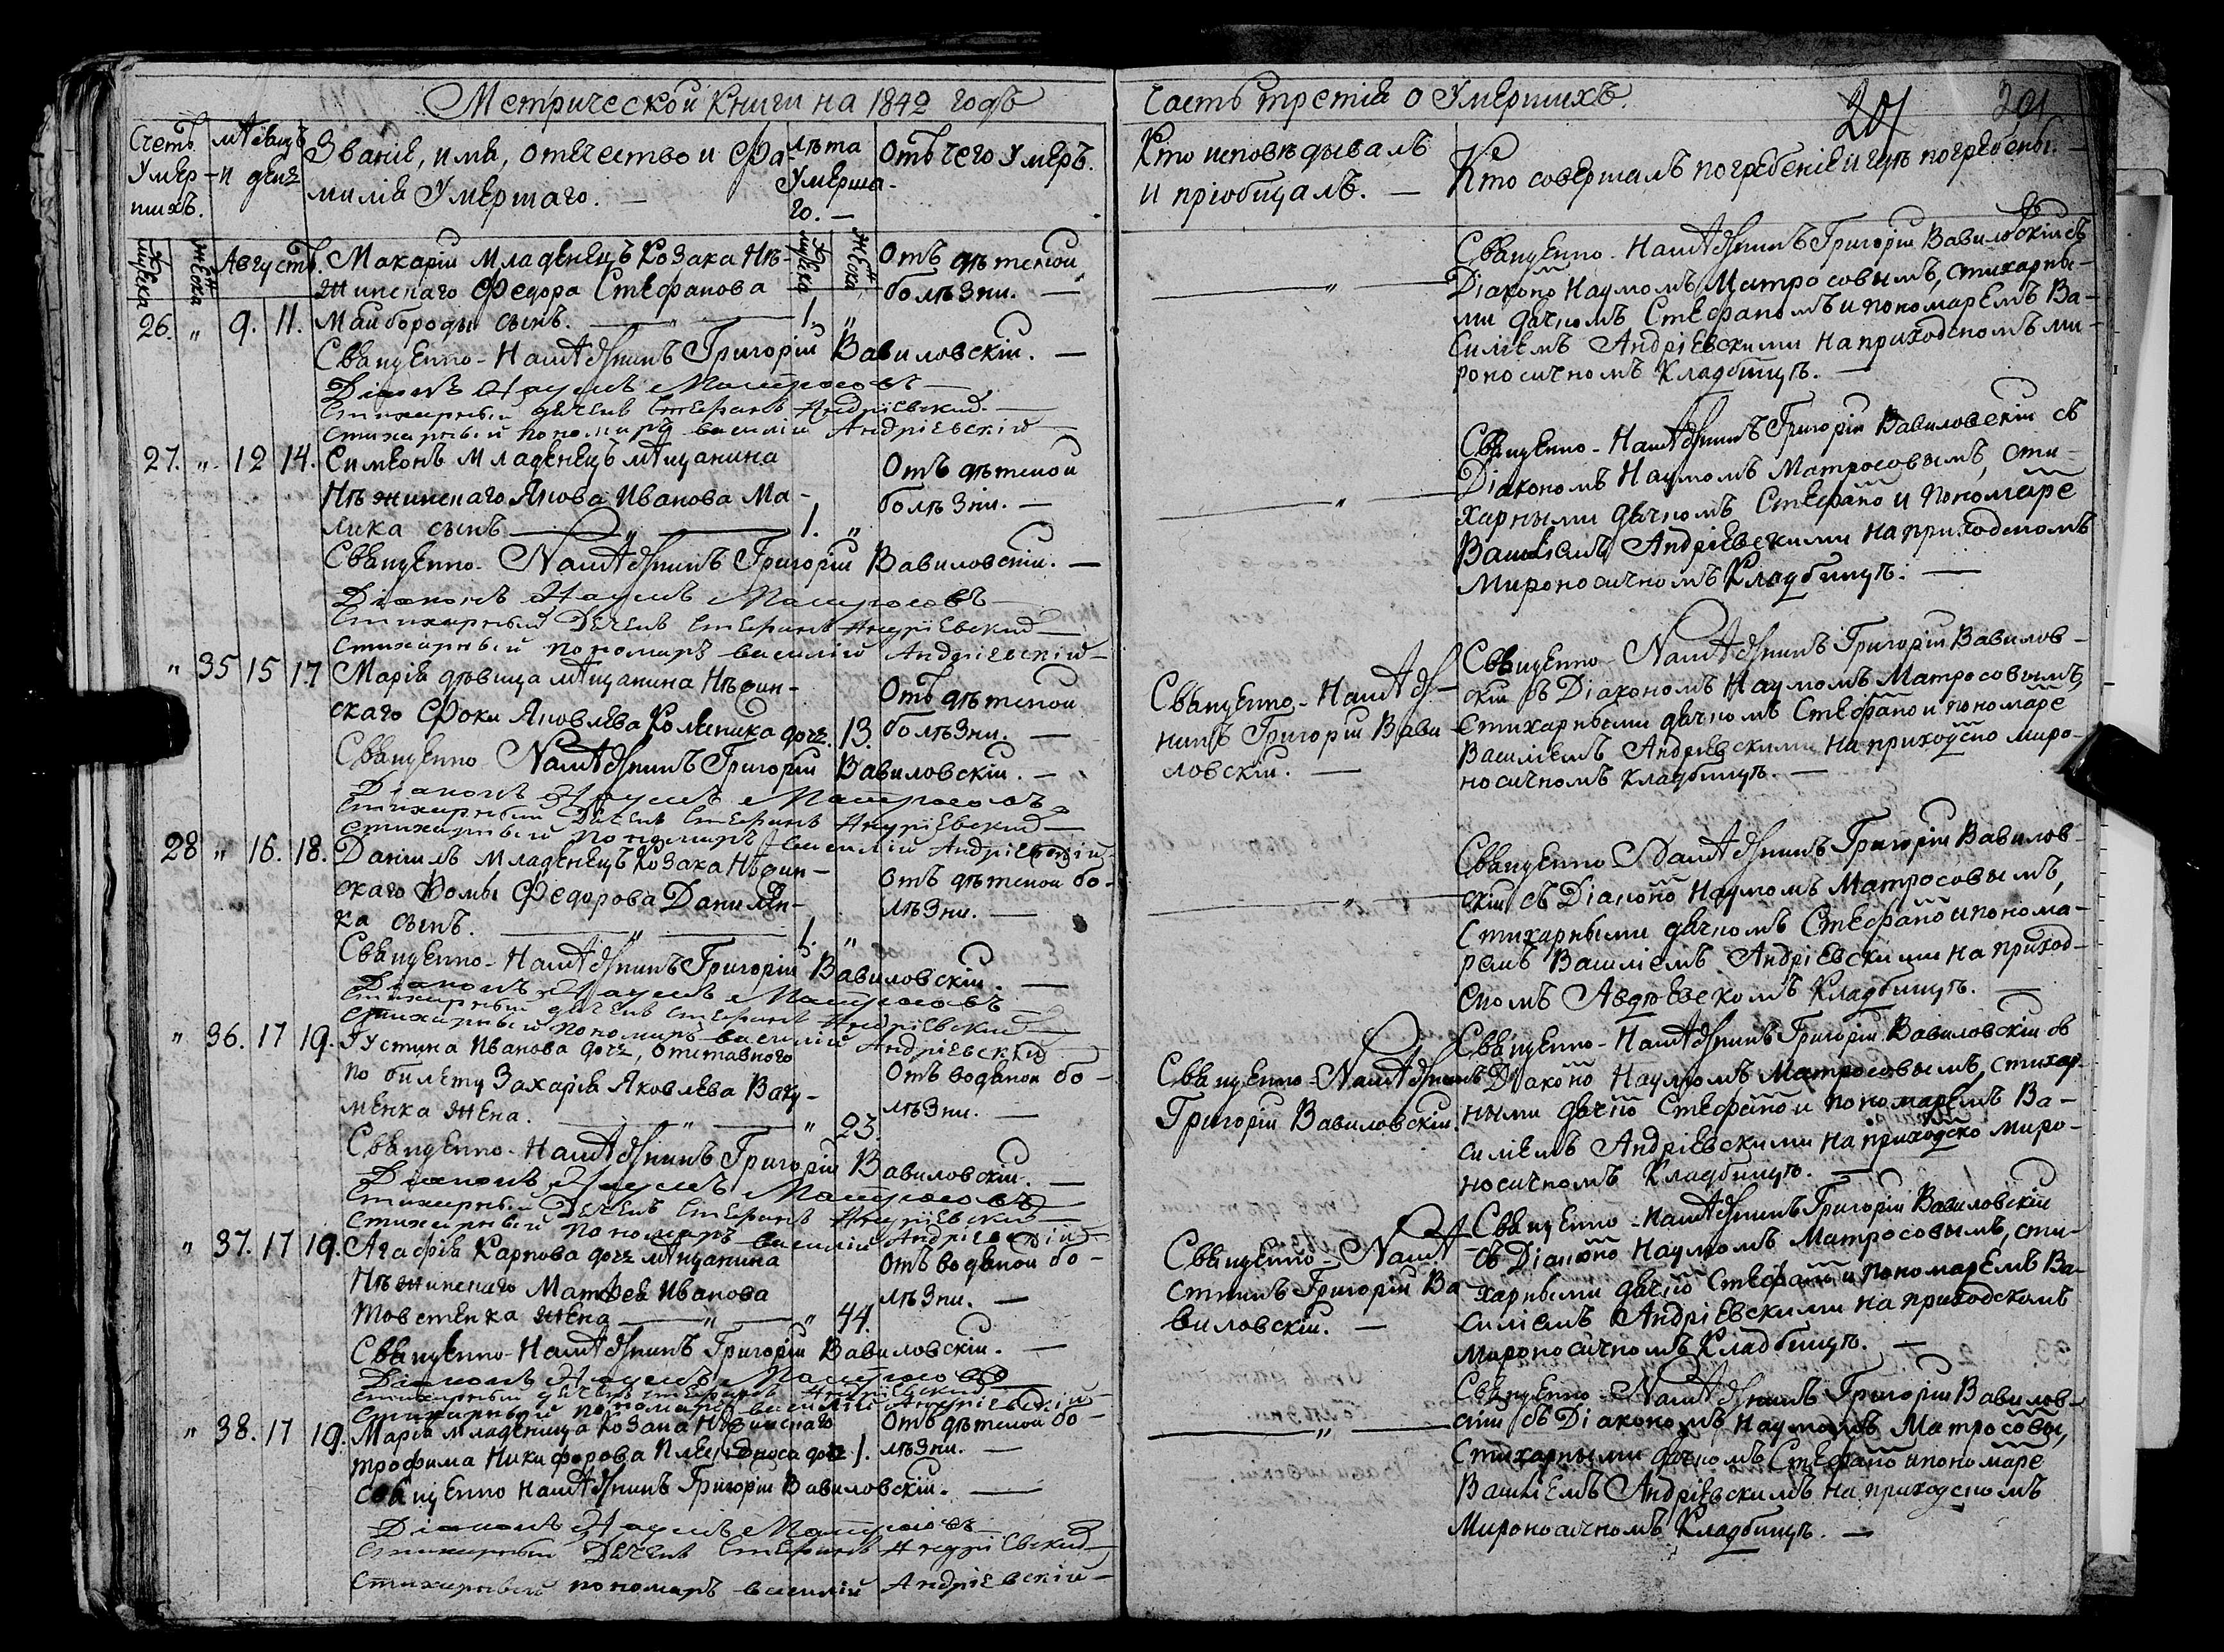 Метрической Книги на 1842 годъ
Счетъ Умер- шихъ.
мѣсяцъ и день
Званіе, имя, отчество и фа-
милія Умершаго. —
лѣта Умерша- го. —
Отъ чего Умеръ.
мужеска
женска
Августъ.
мужеска
женска
Макарій младенецъ Козака Нѣ-
жинскаго Федора Стефанова
26. " 9. 11. Майбороды сынъ. — " — 1. "
Отъ дѣтской
болѣзни. —
Священно-Намѣстникъ Григорій Вавиловскій. —
Діаконъ Наумъ Матросовъ —
Стихарный дячекъ Стефанъ Андріевский. —
Стихарный пономарь василій Андріевскій —
27. " 12 14. Симеонъ младенецъ мѣщанина
Нѣжинскаго Якова Иванова Ма-
лика сынъ — " — 1. "
Отъ дѣтской
болѣзни. —
Священно-Намѣстникъ Григорій Вавиловскій. —
Діаконъ Наумъ Матросовъ —
Стихарный Дячекъ Стефанъ Андріевский —
Стихарный пономарь василій Андріевскій —
" 35 15 17 Марія дѣвица мѣщанина Нѣжин-
скаго Фоки Яковлева Коленика дочь. 13.
Отъ дѣтской
болѣзни. —
Священно Намѣстникъ Григорій Вавиловскій. —
Діаконъ Наумъ Матросовъ
Стихарный Дячекъ Стефанъ Андріевский —
Стихарный пономарь василій Андріевскій —
28 " 16. 18. Даніилъ младенецъ Козака Нѣжин-
скаго Фомы Федорова Данилен-
ка сынъ. — " — 1. "
Отъ дѣтской бо-
лѣзни. —
Священно-Намѣстникъ Григорій Вавиловскій. —
Діаконъ Наумъ Матросовъ
Стихарный дячекъ Стефанъ Андріевский
Стихарный пономарь василій Андріевскій
" 36. 17 19. Іустина Иванова дочь, отставного
по билету Захарія Яковлева Ваку-
менка жена. — " — " 23.
Отъ водяной бо-
лѣзни. —
Священно-Намѣстникъ Григорій Вавиловскій. —
Діаконъ Наумъ Матросовъ
Стихарный Дячекъ Стефанъ Андріевский —
Стихарный пономарь василій Андріевскій —
" 37. 17 19. Агафія Карпова дочь мѣщанина
Нѣжинскаго Матфея Иванова
Товстенка жена — " — " 44.
Отъ водяной бо-
лѣзни. —
Священно-Намѣстникъ Григорій Вавиловскій. —
Діаконъ Наумъ Матросовъ
Стихарный дячекъ Стефанъ Андріевский —
Стихарный пономарь василій Андріевскій
" 38. 17 19. Марія младеница Козака Нѣжинскаго
Трофима Никифорова дочь 1.
Отъ дѣтской бо-
лѣзни. —
Священно Намѣстникъ Григорій Вавиловскій. —
Діаконъ Наумъ Матросовъ
Стихарный Дячекъ Стефанъ Андріевский —
Стихарный пономарь василій Андріевскій —
Часть третія о Умершихъ.
201 201
Кто исповѣдывалъ
и пріобщалъ. —
Кто совершалъ погребеніе и гдѣ погребены. —
— " —
Священно-Намѣстникъ Григорій Вавиловскій съ
Діаконо Наумомъ Матросовымъ, стихарны-
ми дячкомъ Стефаномъ и пономаремъ Ва-
силіемъ Андріевскими на приходскомъ ми-
роносичномъ Кладбищѣ. —
— " —
Священно-Намѣстникъ Григорій Вавиловскій съ
Діакономъ Наумомъ Матросовымъ, сти-
харными дячкомъ Стефано и пономаре
Василіемъ Андріевскими на приходскомъ
Мироносичномъ Кладбищѣ. —
Священно-Намѣст-
никъ Григорій Вави-
ловскій. —
Священно-Намѣстникъ Григорій Вавилов-
скій съ Діакономъ Наумомъ Матросовымъ,
Стихарными дячкомъ Стефано и пономаре
Василіемъ Андріевскими на приходско миро-
носичномъ кладбищѣ. —
— " —
Священно Намѣстникъ Григорій Вавилов-
скій съ Діаконо Наумомъ Матросовымъ,
Стихарными дячкомъ Стефано и понома-
ремъ Василіемъ Андріевскими на приход-
скомъ Авдѣевскомъ Кладбищѣ. —
Священно-Намѣстникъ
Григорій Вавиловскій.
Священно-Намѣстникъ Григорій Вавиловскій съ
Діаконо Наумомъ Матросовымъ, стихар-
ными дячко Стефано и пономаремъ Ва-
силіемъ Андріевскими на приходско миро-
носичномъ Кладбищѣ. —
Священно-Намѣ-
стникъ Григорій Ва
виловскій. —
Священно-Намѣстникъ Григорій Вавиловскій
съ Діаконо Наумомъ Матросовымъ, сти-
харными дячко Стефано и пономаремъ Ва-
силіемъ Андріевскими на приходскомъ
Мироносичномъ Кладбищѣ. —
— " —
Священно-Намѣстникъ Григорій Вавилов-
скій съ Діакономъ Наумомъ Матросовы,
Стихарными дячкомъ Стефано и пономаре
Василіемъ Андріевскимъ на приходскомъ
Мироносичномъ Кладбищѣ. —